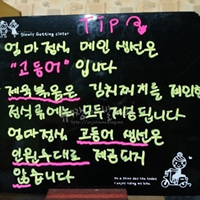 Slowly Getting sinter
TIP
엄마정식 메인 생선은
"고등어" 입니다
제육볶음은 김치찌개를 제외한
정식류에는 모두 제공됩니다
엄마정식 고등어 생선은
인원수대로 제공되지
않습니다
On a shiny day like today
I enjoy riding my bike.